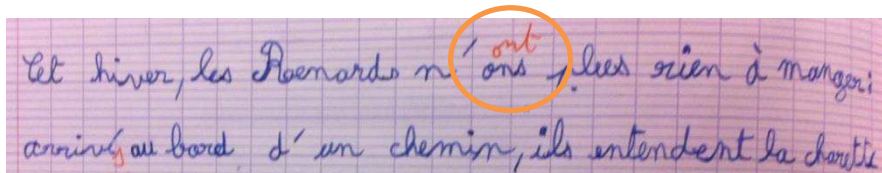 ont
Cet hiver, les Renards n'ons plus rien à manger;
arrivés au bord d'un chemin, ils entendent la charette